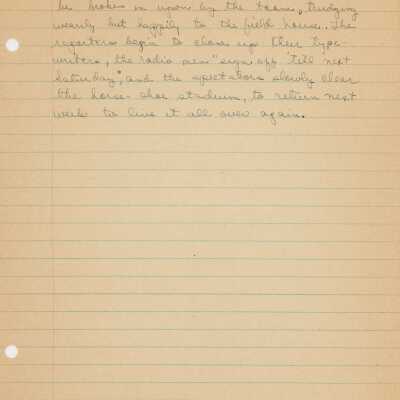 be broken in upon by the teams, trudging
wearily but happily to the field house. The
reporters begin to close up their type-
writers, the radio men "sign off 'till next
Saturday", and the spectators slowly clear
the horse-shoe stadium, to return next
week to live it all over again.